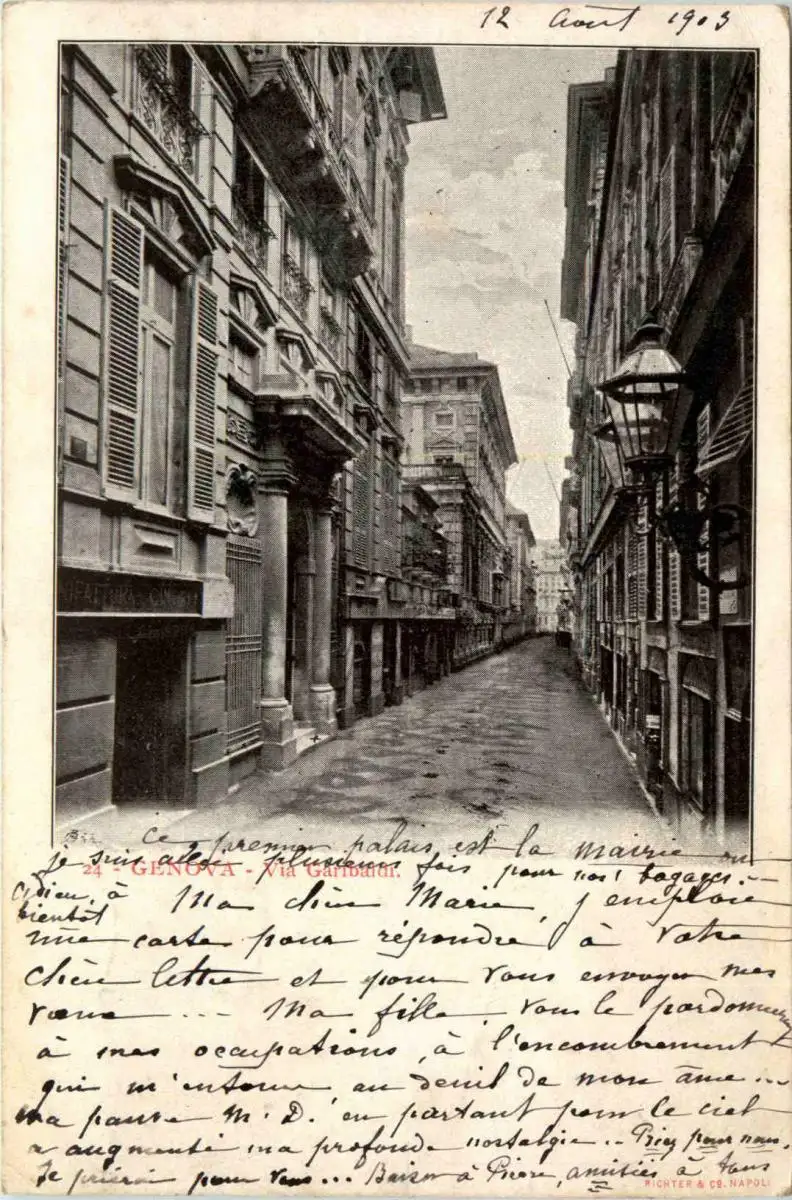 12 Août 1903
MANIFATTURA
Ce premier palais est la mairie où
je suis allée plusieurs fois pour nos bagages.-
24 - GENOVA - Via Garibaldi.
adieu, à
bientôt
Ma chère Marie, j'emploie
une carte pour répondre à votre
chère lettre et pour vous envoyer mes
vœux ... Ma fille, vous le pardonnerez
à mes occupations, à l'encombrement
qui m'entoure au deuil de mon âme ...
ma pauvre M. D. en partant pour le ciel
a augmenté ma profonde nostalgie .. Priez pour nous.
Je prierai pour vous ... Baiser à Pierre, amitiés à tous
RICHTER & Cº. NAPOLI